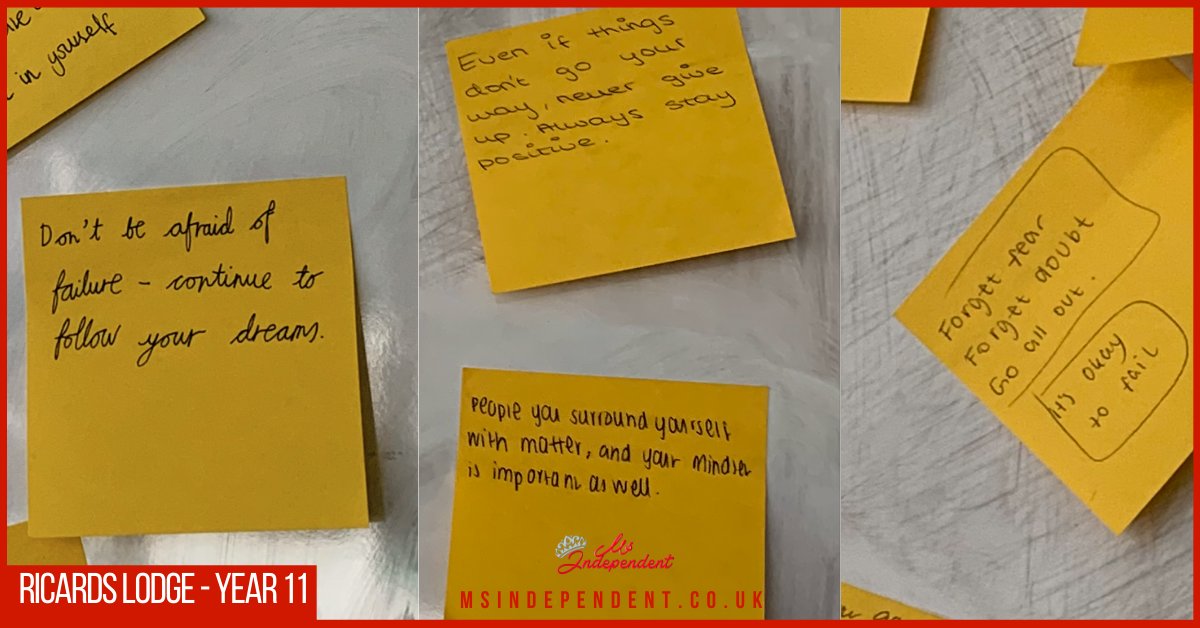 in yourself
Don't be afraid of
failure - continue to
follow your dreams.
Even if things
don't go your
way, never give
up. Always stay
positive.
People you surround yourself
with matter, and your mindset
is important as well.
Forget fear
Forget doubt
Go all out.
It's okay
to fail
Ms
Independent
MSINDEPENDENT.CO.UK
RICARDS LODGE - YEAR 11